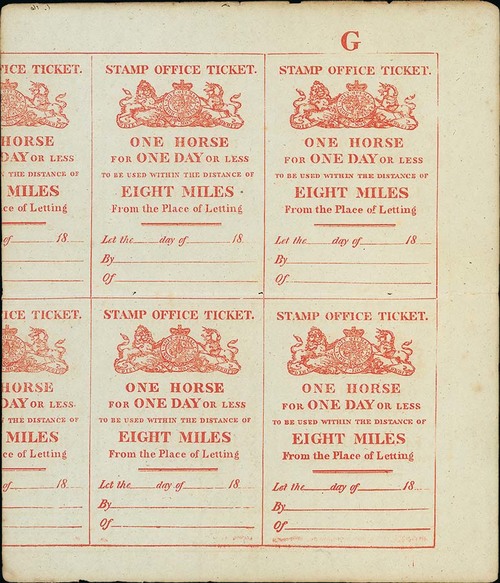 G
FICE TICKET.
HORSE
DAY OR LESS
THE DISTANCE OF
MILES
ce of Letting
of 18
STAMP OFFICE TICKET.
ONE HORSE
FOR ONE DAY OR LESS
TO BE USED WITHIN THE DISTANCE OF
EIGHT MILES
From the Place of Letting
Let the day of 18
By
Of
STAMP OFFICE TICKET.
ONE HORSE
FOR ONE DAY OR LESS
TO BE USED WITHIN THE DISTANCE OF
EIGHT MILES
From the Place of Letting
Let the day of 18
By
Of
ICE TICKET.
HORSE
DAY OR LESS
THE DISTANCE OF
MILES
ce of Letting
of 18
STAMP OFFICE TICKET.
ONE HORSE
FOR ONE DAY OR LESS
TO BE USED WITHIN THE DISTANCE OF
EIGHT MILES
From the Place of Letting
Let the day of 18
By
Of
STAMP OFFICE TICKET.
ONE HORSE
FOR ONE DAY OR LESS
TO BE USED WITHIN THE DISTANCE OF
EIGHT MILES
From the Place of Letting
Let the day of 18
By
Of